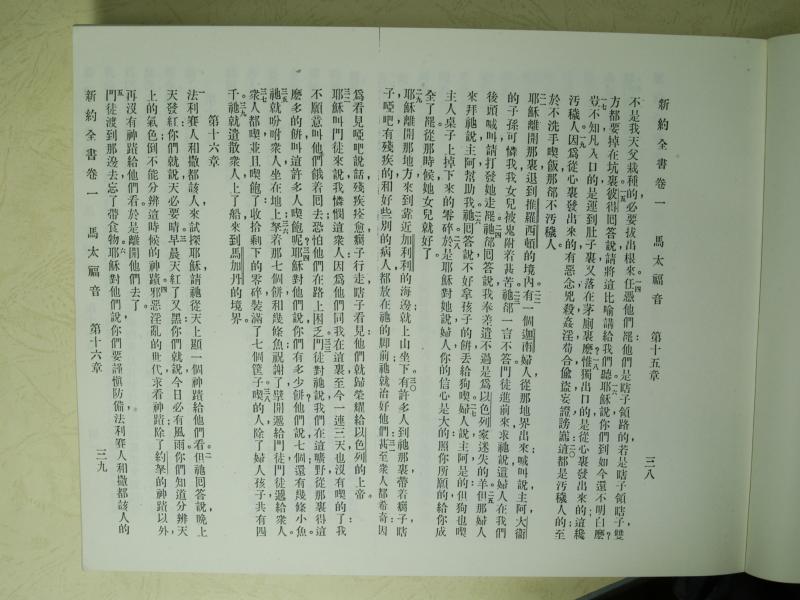 新約全書卷一 馬太福音 第十五章 三八
不是我天父栽種的必要拔出根來任憑他們罷他們是瞎子領路的若是瞎子領瞎子雙
方都要掉在坑裏彼得囘答說請將這比喻講給我們聽耶穌說你們到如今還不明白麼
豈不知凡入口的是運到肚子裏又落在茅廁裏麼惟獨出口的是從心裏發出來的這纔
污穢人因爲從心裏發出來的有惡念兇殺姦淫苟合偸盜妄證謗讟這都是污穢人的至
於不洗手喫飯那却不污穢人
耶穌離開那裏退到推羅西頓的境內有一個迦南婦人從那地界出來喊叫說主阿大衞
的子孫可憐我我女兒被鬼附着甚苦祂却一言不答門徒進前來求祂說這婦人在我們
後頭喊叫請打發她走罷祂囘答說我奉差遣不過是爲以色列家迷失的羊但那婦人
來拜祂說主阿幫助我祂囘答說不好拿孩子的餅丟給狗喫婦人說主阿是的但狗也喫
主人桌子上掉下來的零碎於是耶穌對她說婦人你的信心是大的照你所願的給你成
全了罷從那時候她女兒就好了
耶穌離開那地方來到靠近加利利的海邊就上山坐下有許多人到祂那裏帶着瘸子瞎
子啞吧有殘疾的和好些別的病人都放在祂的脚前祂就治好他們甚至衆人都希奇因
爲看見啞吧說話殘疾痊愈瘸子行走瞎子看見他們就歸榮耀給以色列的上帝
耶穌叫門徒來說我憐憫這衆人因爲他們同我在這裏至今一連三天也沒有喫的了我
不願意叫他們餓着囘去恐怕他們在路上困乏門徒對祂說我們在這曠野從那裏得這
麽多的餅叫這許多人喫飽呢耶穌對他們說你們有多少餅他們說七個還有幾條小魚
祂就吩咐衆人坐在地上拏着那七個餅和幾條魚祝謝了擘開遞給門徒門徒遞給衆人
衆人都喫並且喫飽了收拾剩下的零碎裝滿了七個筐子喫的人除了婦人孩子共有四
千祂就遣散衆人上了船來到馬加丹的境界
第十六章
法利賽人和撒都該人來試探耶穌請祂從天上顯一個神蹟給他們看但祂囘答說晚上
天發紅你們就說天必要晴早晨天紅了又黑你們就說今日必有風雨你們知道分辨天
上的氣色倒不能分辨這時候的神蹟邪惡淫亂的世代求看神蹟除了約拏的神蹟以外
再沒有神蹟給他們看於是離開他們去了
門徒渡到那邊去忘了帶食物耶穌對他們說你們要謹愼防備法利賽人和撒都該人的
新約全書卷一 馬太福音 第十六章 三九